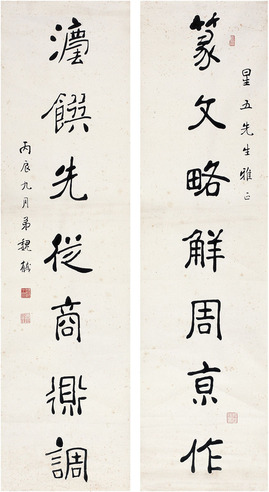 篆文略觧周亰作
星五先生雅正
灋饌先從商鼎調
丙辰九月弟魏戫